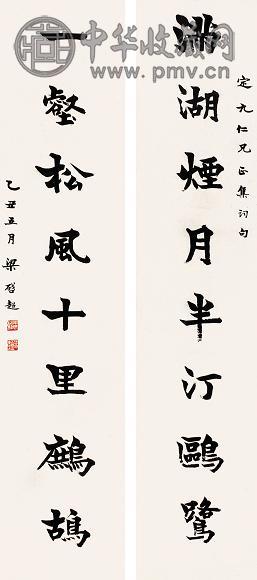 中华收藏网
www.pmv.cn
定九仁兄正集詞句
湖煙月半汀鷗鷺
一壑松風十里鷓鴣
乙丑五月梁啓超